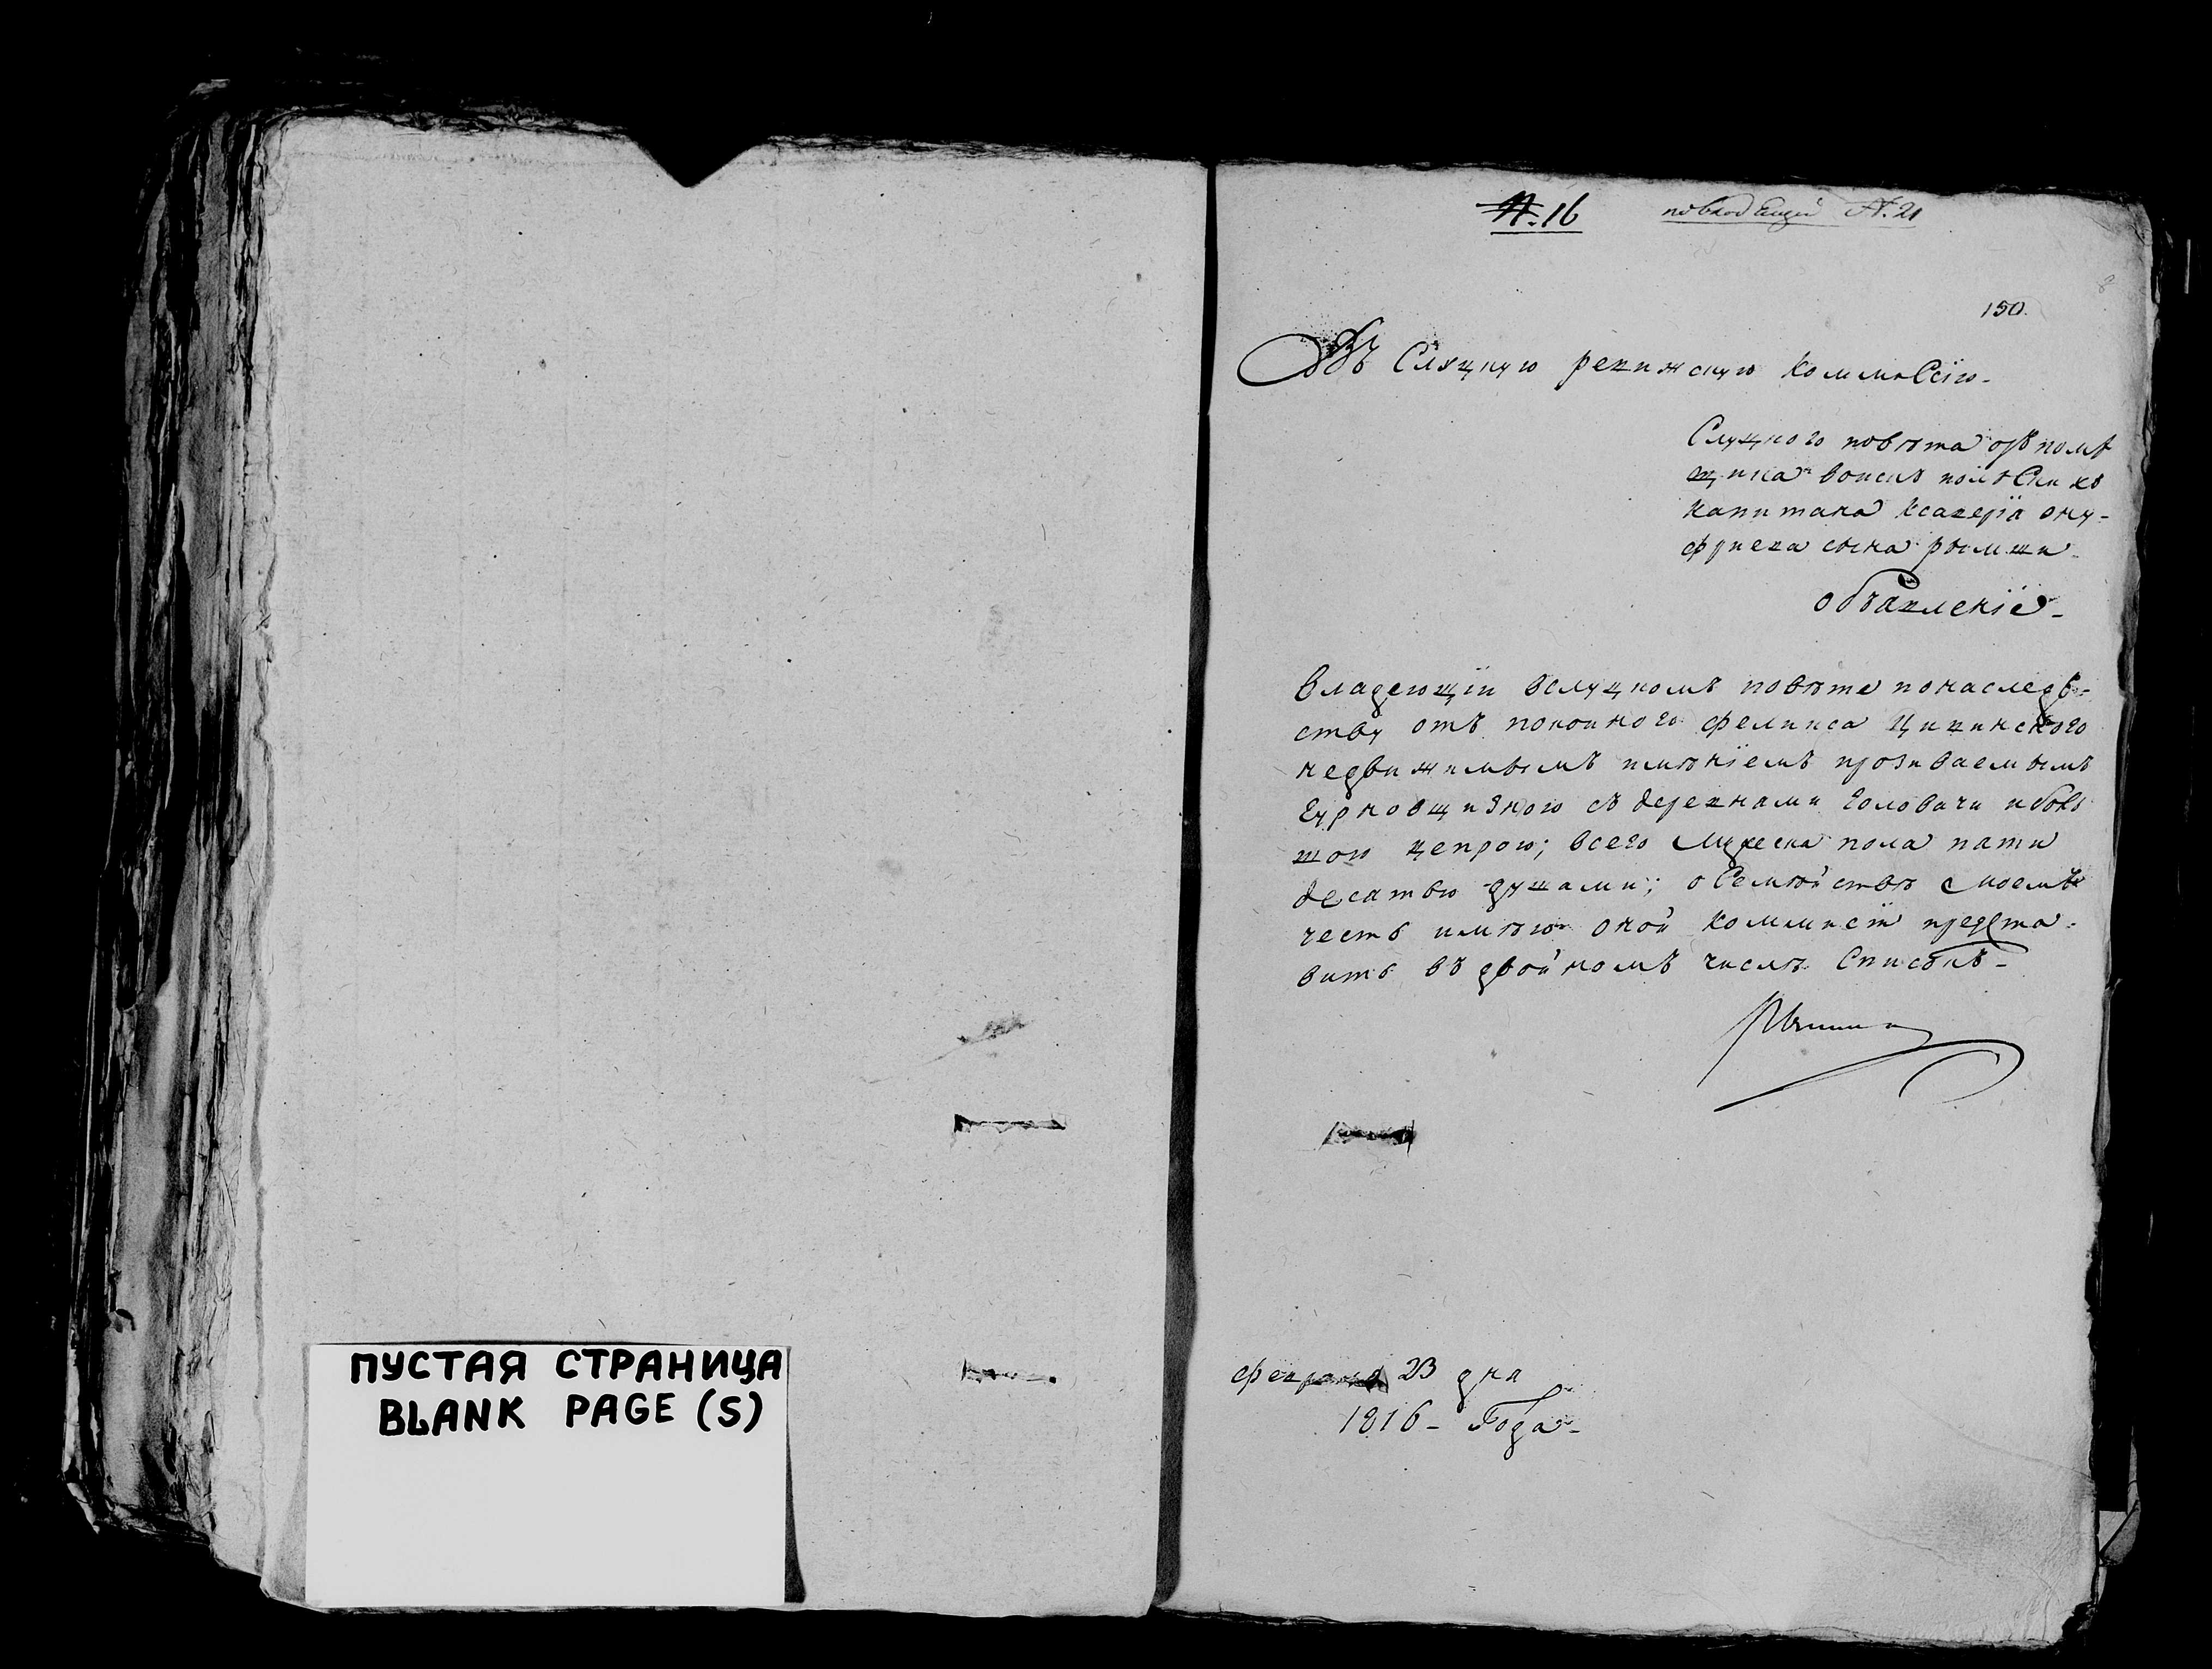 ПУСТАЯ СТРАНИЦА
BLANK PAGE (S)
№. 16 по входящей №. 21
150.
Въ Слуцкую ревижскую коммиссїю-
Слуцкого повѣта отъ помѣ
щика воискъ полскихъ
капитана ксаверїя ону-
фриева сына рымши
объявленїе-
владеющїи вслуцкомъ повѣте понаследв-
ству отъ покоиного феликса Цивинского
недвижимымъ имѣнїемъ прозиваемымъ
гурновщизною съ деревнами головачи и
цепрою; всего мужеска пола пяти
десятью душами; о Семѣйствѣ моемъ
честь имѣю оной коммисїи предста-
вить въ двойномъ числѣ Списокъ-
февраля 23 дня
1816- Года-